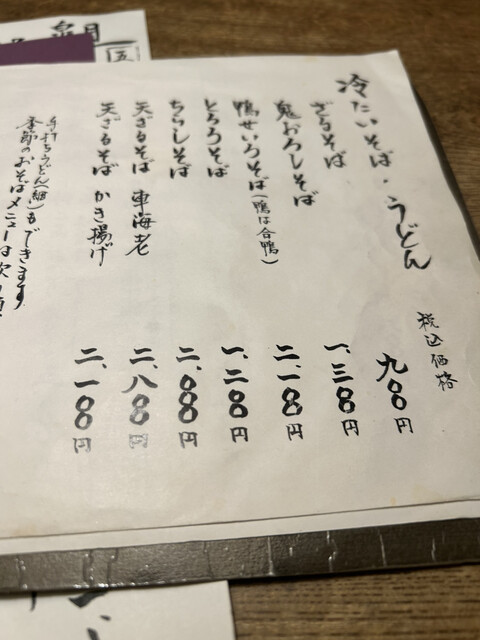 冷たいそば・うどん
税込価格
ざるそば 九〇〇円
鬼おろしそば 一、三〇〇円
鴨せいろそば(鴨は合鴨) 二、一〇〇円
とろろそば 一、二〇〇円
ちらしそば 二、〇〇〇円
天ざるそば 車海老 二、八〇〇円
天ざるそば かき揚げ 二、一〇〇円
手打ちうどん(細)もできます
季節のおそばメニューは次